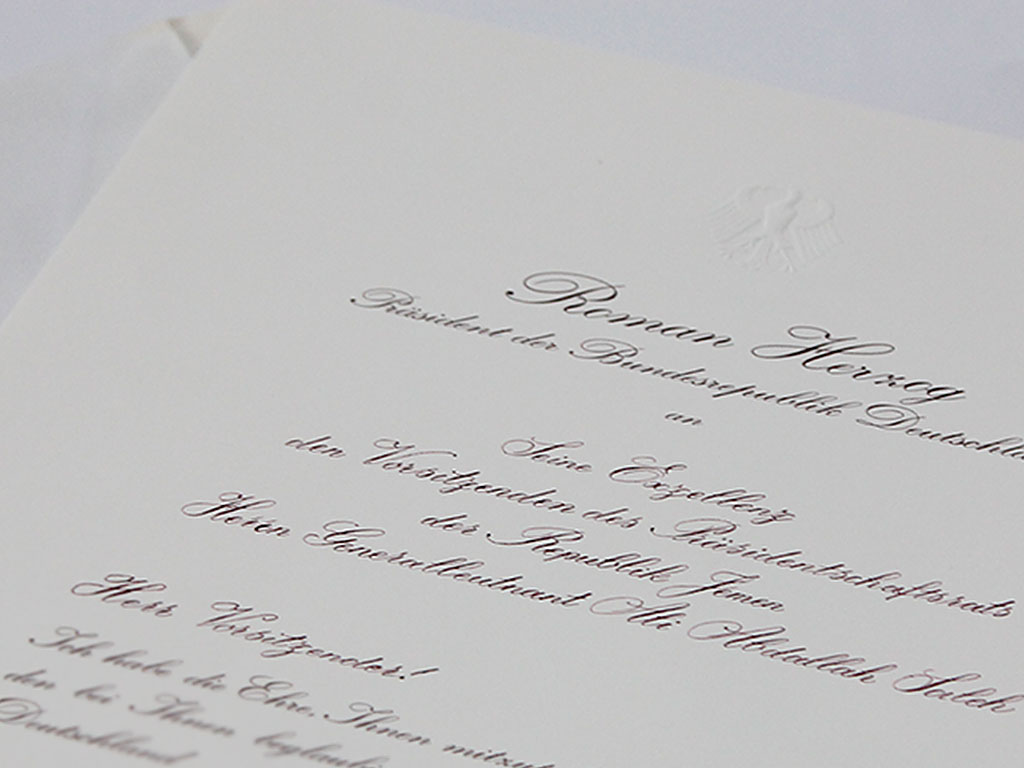 Roman Herzog
Präsident der Bundesrepublik Deutschla
an
Seine Exzellenz
den Vorsitzenden des Präsidentschaftsrats
der Republik Jemen
Herrn Generalleutnant Ali Abdallah Saleh
Herr Vorsitzender!
Ich habe die Ehre, Ihnen mitzut
den bei Ihnen beglaubi
Deutschland